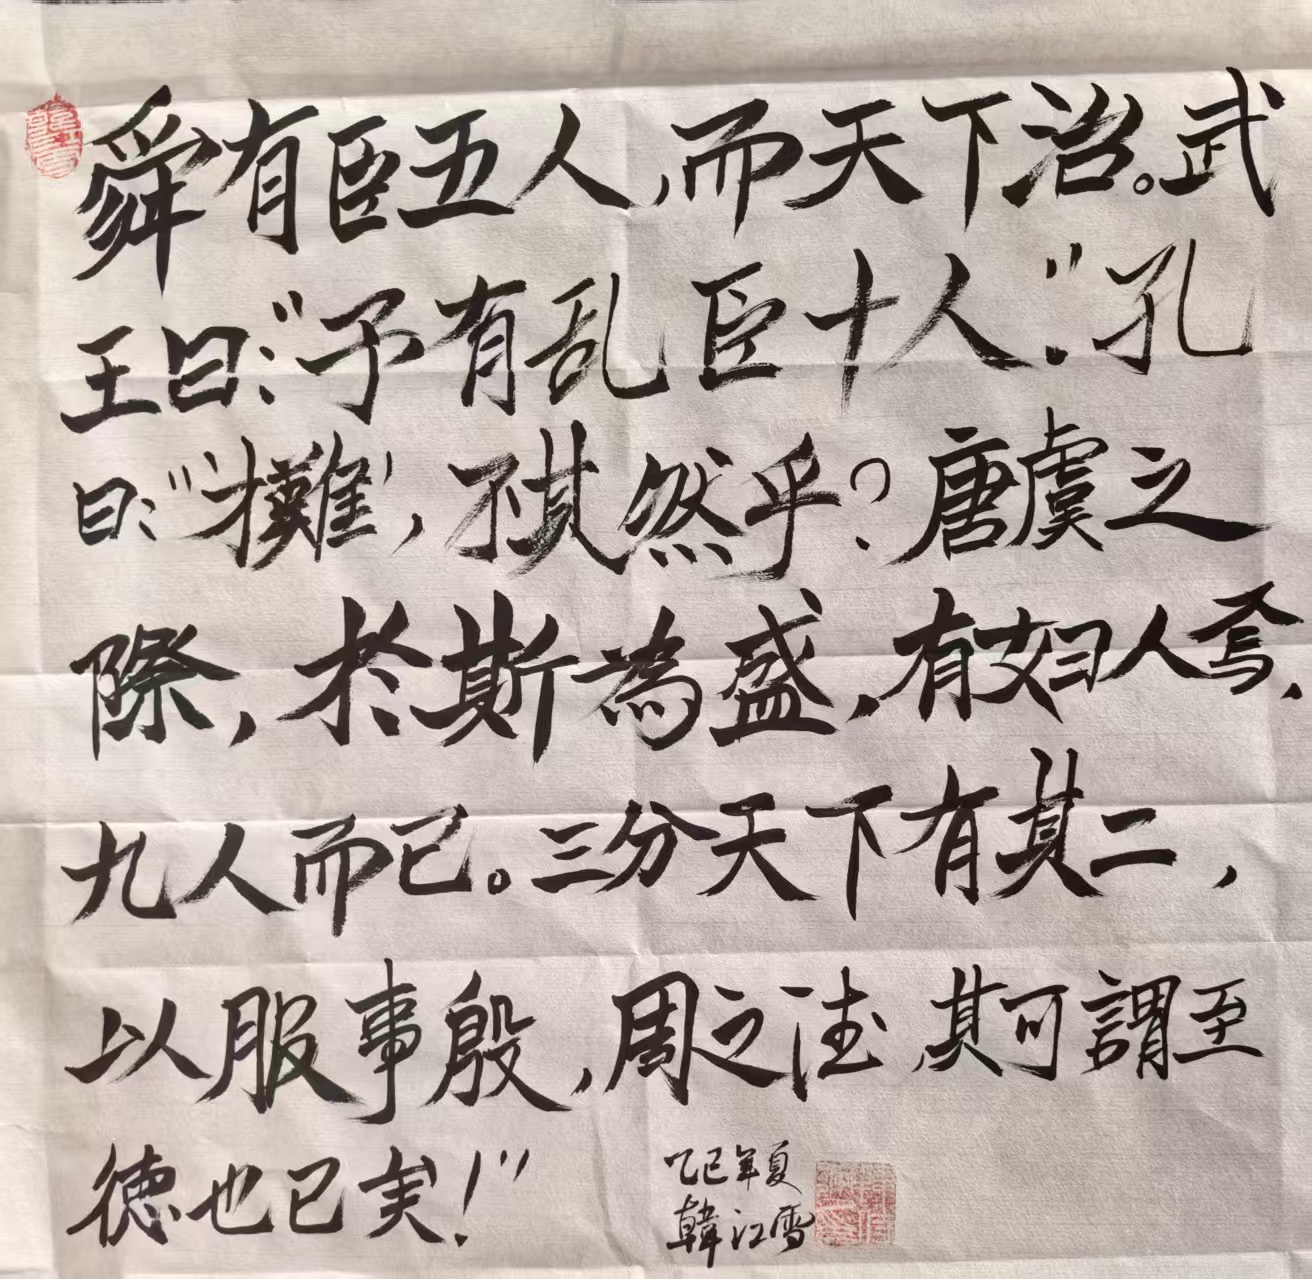 舜有臣五人,而天下治。武
王曰:"予有乱臣十人."孔
曰:"才難',不其然乎?唐虞之
際,於斯為盛,有妇人焉,
九人而已。三分天下有其二,
以服事殷,周之法 其可謂至
德也已矣!"
乙巳年夏
韓江雪